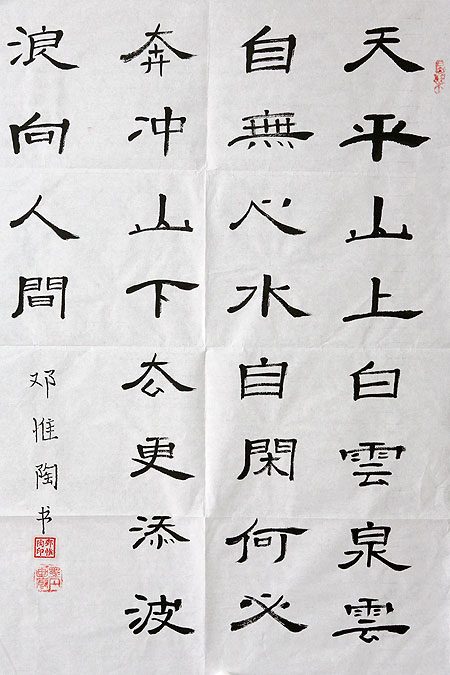 天平山上白雲泉雲
自無心水自閑何必
奔冲山下厺更添波
浪向人間
邓惟陶书